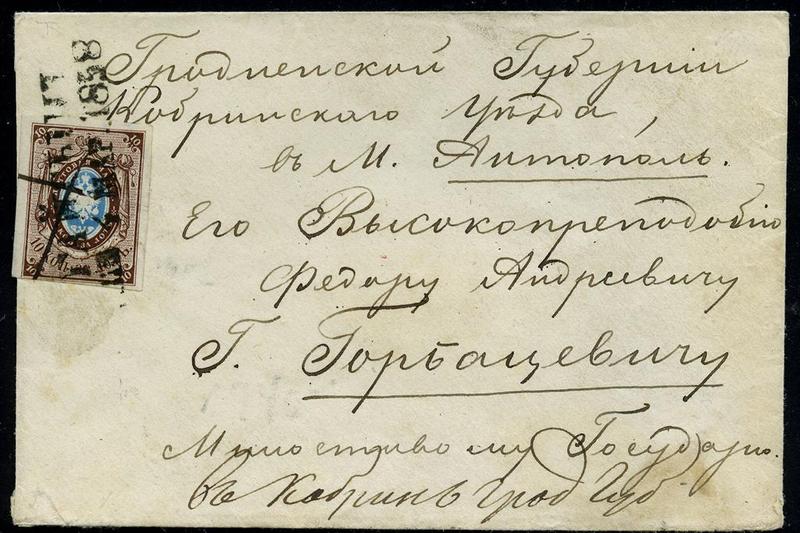 1858
Гродненской Губернии
Кобринскаго Уѣзда,
въ М. Антополь.
Его Высокопреподобію
Федору Андреевичу
Г. Горбацевичу
Милостивому Государю.
въ Кобринъ Грод Губ
10 коп.